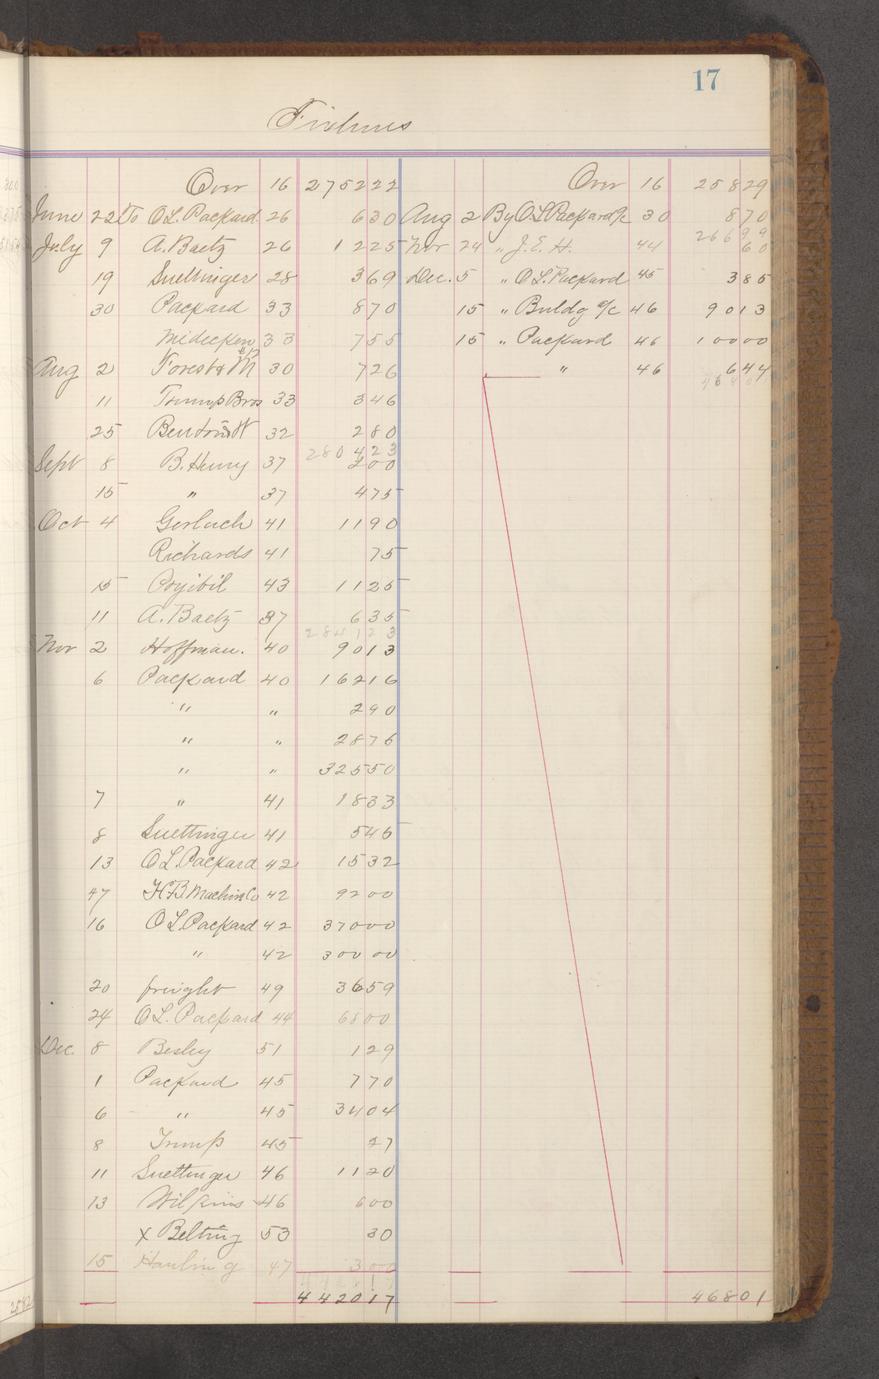 17
Fixtures
Over 16 275222
June 22 To O.L. Packard 26 630
July 9 A. Baetz 26 1225
19 Suettinger 28 369
30 Packard 33 870
33 755
Aug 2 Forest & M 30 726
11 Trump Bros 33 346
25 32 280
280423
Sept 8 B. Henry 37 200
15 " 37 475
Oct 4 Gerlach 41 1190
Richards 41 75
15 43 1125
11 A. Baetz 37 635
284123
Nov 2 Hoffman. 40 9013
6 Packard 40 16216
" " 290
" " 2876
" " 32550
7 " 41 1833
8 Suettinger 41 546
13 O.L. Packard 42 1532
17 H B Machine Co 42 9200
16 O L Packard 42 37000
" 42 30000
20 freight 49 3659
24 O.L. Packard 44 6800
Dec. 8 Besley 51 129
1 Packard 45 770
6 " 45 3404
8 Trump 45 27
11 Suettinger 46 1120
13 Wilkins 46 600
x Belting 53 30
15 Hauling 47 300
442017
Over 16 25829
Aug 2 By O L Packard a/c 30 870
26699
Nov 24 " J.E.H. 44 60
Dec. 5 " O L Packard 45 385
15 " Buldg a/c 46 9013
15 " Packard 46 10000
" 46 644
46801